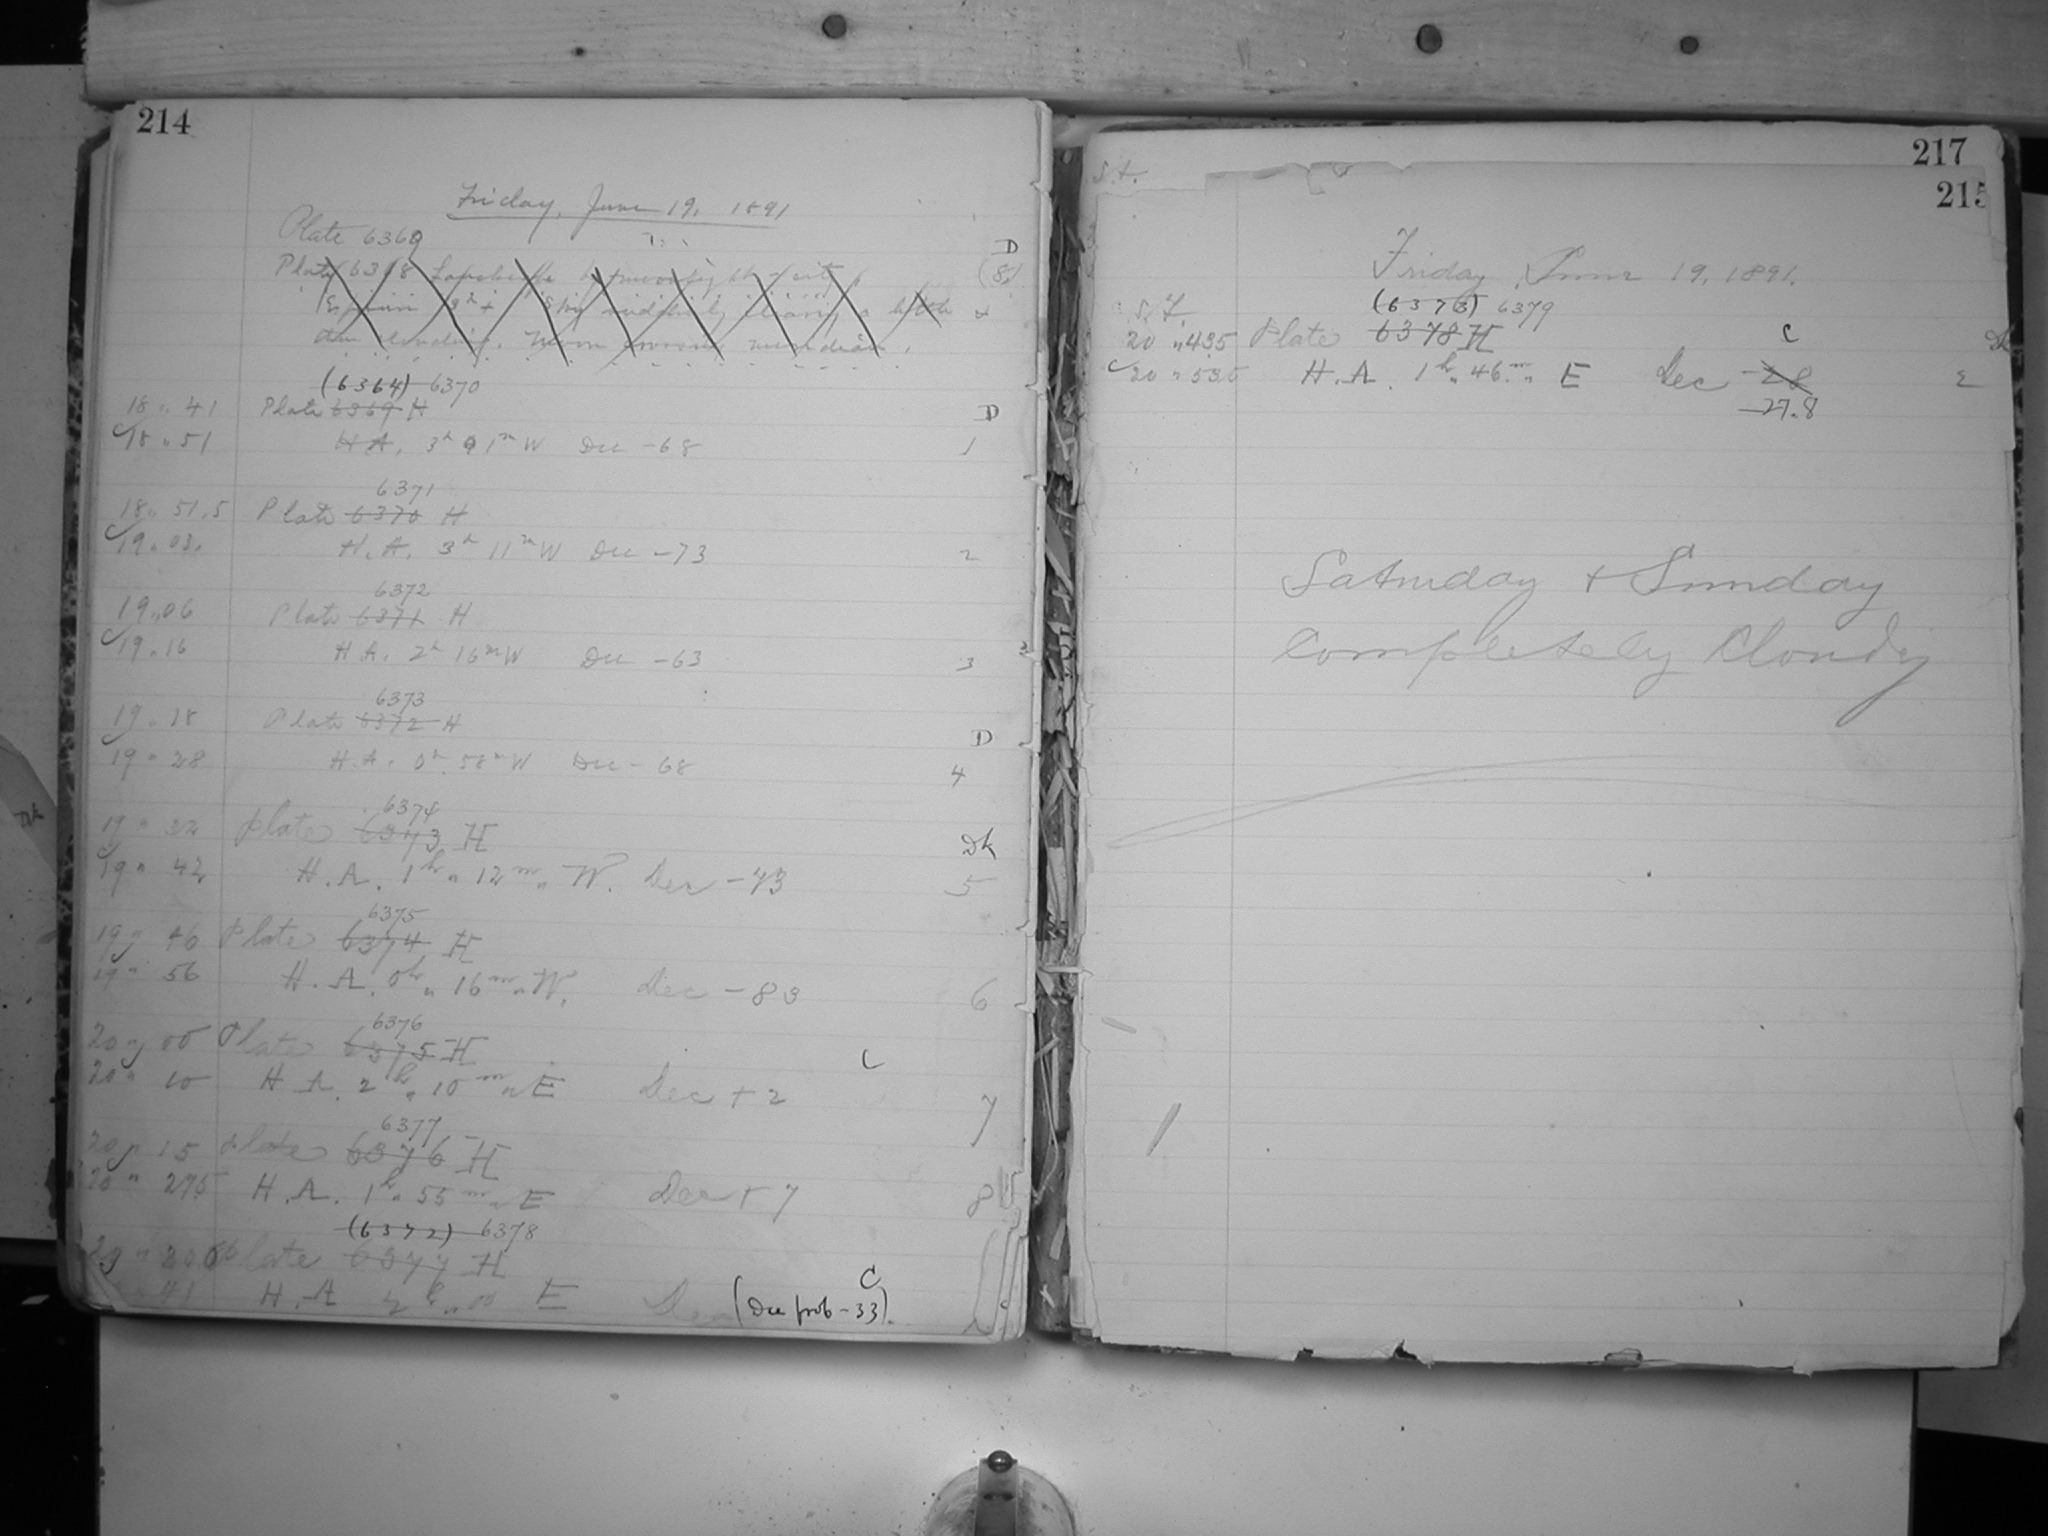 214
Friday, June 19, 1891
Plate 6369
D
Plate 6368 Landscape by moonlight
(8)
suddenly
meridian.
(6364) 6370
18 " 41 Plate 6369 H
D
18 " 51 H.A. 3h 01m W Dec -68 1
6371
18 " 51.5 Plate 6370 H
19 " 03. H.A. 3h 11m W Dec -73 2
6372
19 " 06 Plate 6371 H
19 " 16 H.A. 2h 16m W Dec -63 3
6373
19 " 18 Plate 6372 H
D
19 " 28 H.A. 0h 58m W Dec -68 4
6374
19 " 32 Plate 6373 H
Dk
19 " 42 H.A. 1h " 12m " W. Dec -73 5
6375
19 " 46 Plate 6374 H
19 " 56 H.A. 0h " 16m " W. Dec -83 6
6376
20 " 00 Plate 6375 H
C
20 " 10 H.A. 2h " 10m " E Dec +2 7
6377
20 " 15 Plate 6376 H
20 " 275 H.A. 1h " 55m " E Dec +7 8
(6372) 6378
Plate 6377 H
C
41 H.A. E Dec (Dec prob -33).
217
S.T.
215
Friday, June 19, 1891.
(6373) 6379
S.T.
20 " 435 Plate 6378 H
C
Dk
20 " 535 H.A. 1h " 46m " E Dec -28
-27.8
Saturday + Sunday
Completely Cloudy